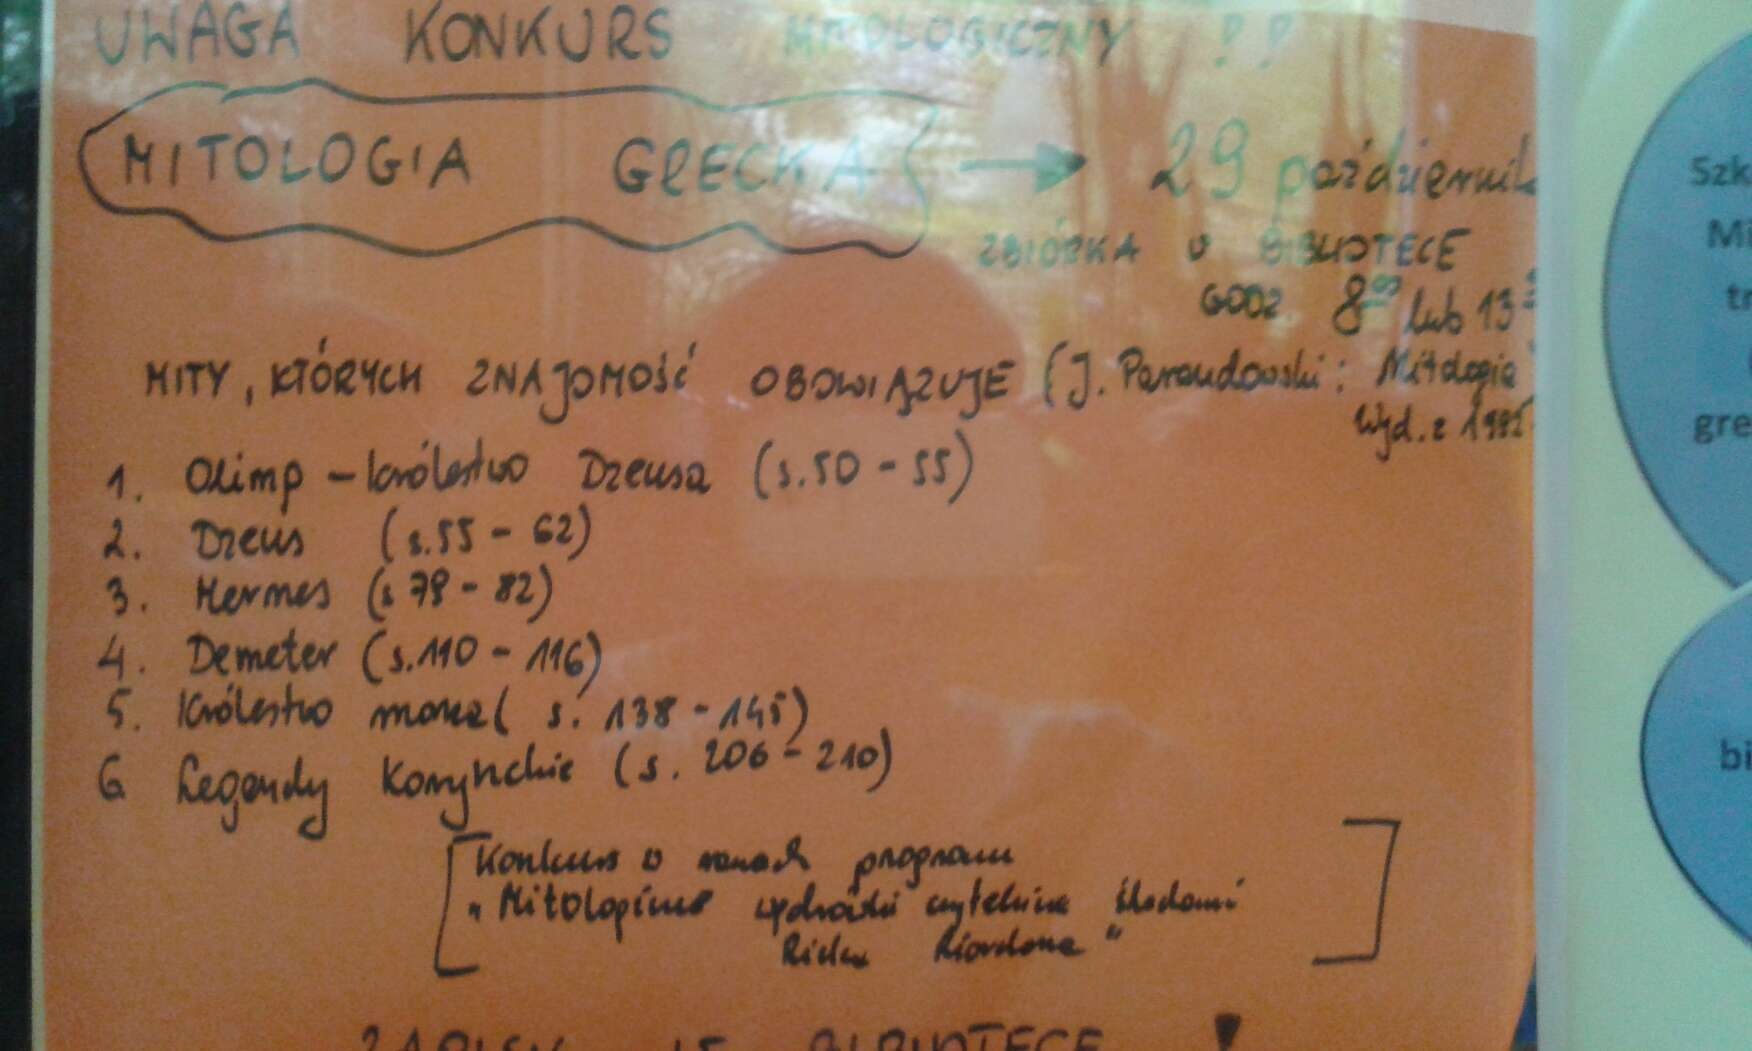 UWAGA KONKURS MITOLOGICZNY !!
MITOLOGIA GRECKA → 29 październik
ZBIÓRKA W BIBLIOTECE
GODZ 8 lub 13
MITY, KTÓRYCH ZNAJOMOŚĆ OBOWIĄZUJE (J. Parandowski: Mitologia
Wyd. z
1. Olimp - królestwo Dzeusa (s. 50 - 55)
2. Dzeus (s. 55 - 62)
3. Hermes (s 79 - 82)
4. Demeter (s. 110 - 116)
5. Królestwo morza (s. 138 - 145)
6 Legendy Korynckie (s. 206 - 210)
[Konkurs w ramach program
"Mitologiczne wędrówki czytelnicze śladami
Ricka Riordana"]
W BIBLIOTECE !
Szk
Mi
tr
gre
bi